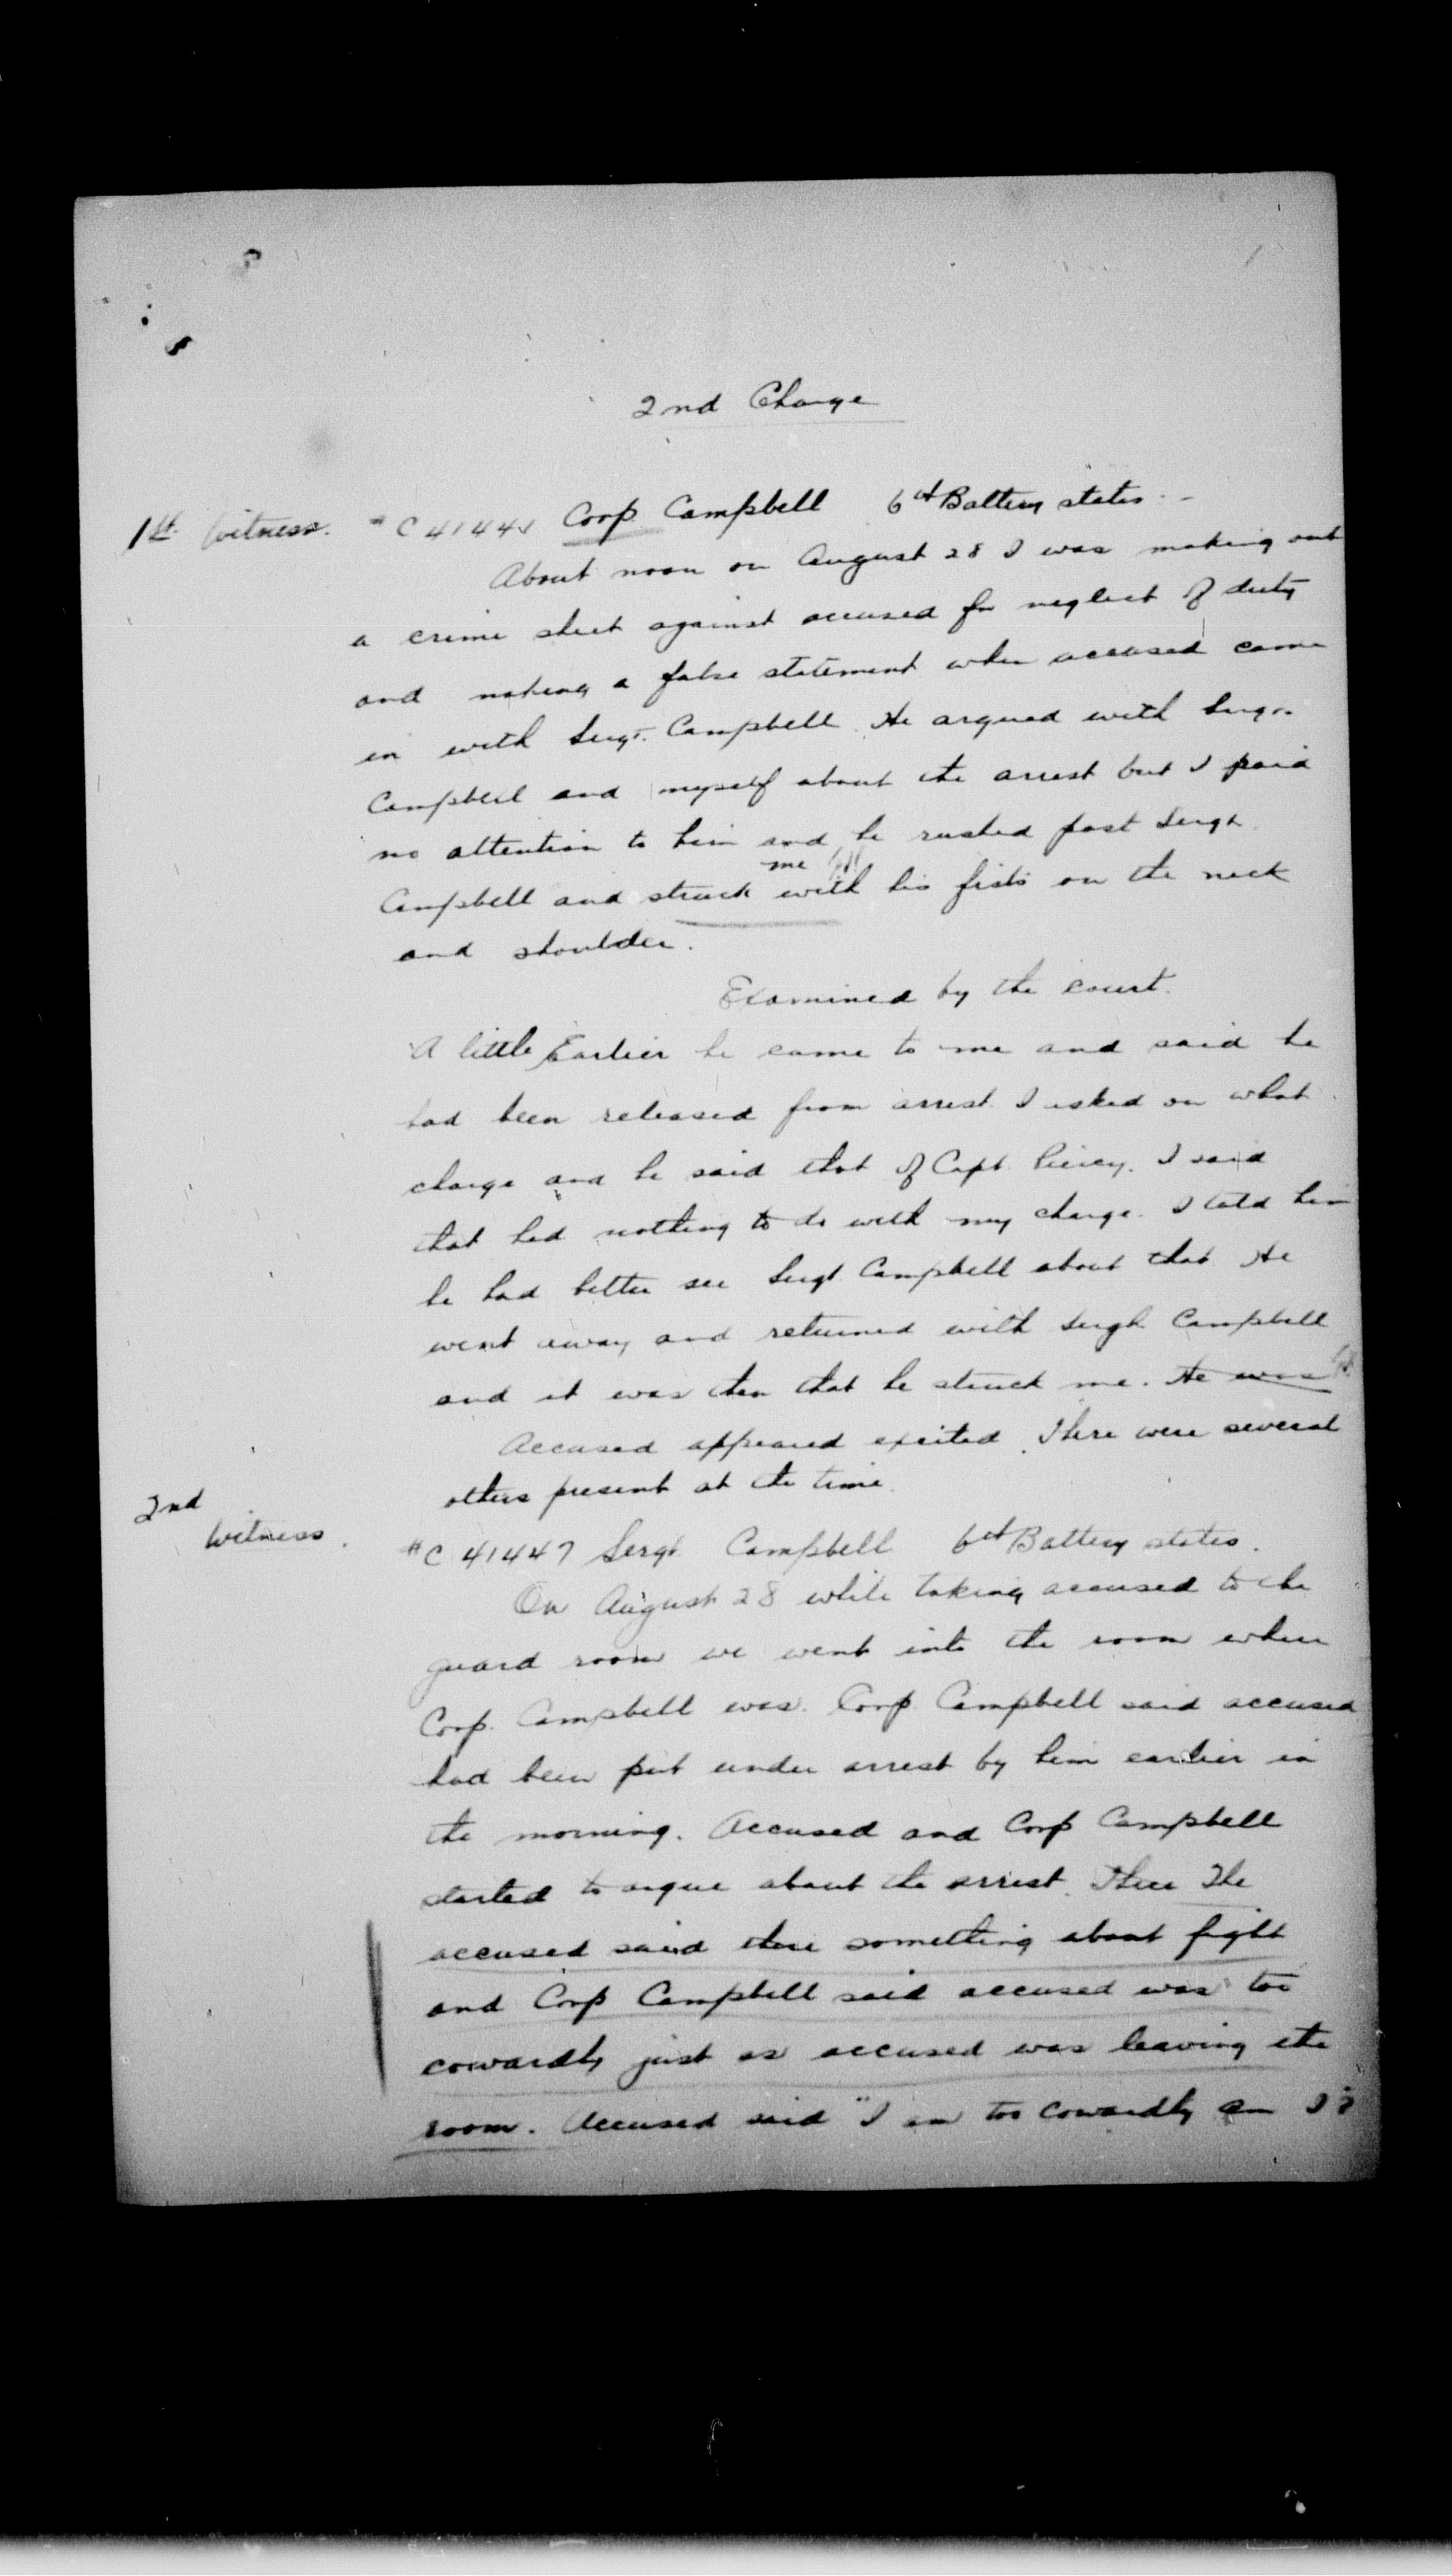 2nd Charge
1st witness. # C 4144 Corp Campbell 6th Battery states.-
About noon on August 28 I was making out
a crime sheet against accused for neglect of duty
and making a false statement when accused came
in with Sergt. Campbell. He argued with Sergt.
Campbell and myself about the arrest but I paid
no attention to him and he rushed past Sergt.
me
Campbell and struck with his fists on the neck
and shoulder.
Examined by the court.
A little Earlier he came to me and said he
had been released from arrest. I asked on what
charge and he said that of Capt. I said
that had nothing to do with my charge. I told him
he had better see Sergt. Campbell about that. He
went away and returned with Sergt. Campbell
and it was then that he struck me. He was
Accused appeared excited. There were several
others present at the time.
2nd
witness. # C 41447 Sergt. Campbell 6th Battery states.
On August 28 while taking accused to the
guard room we went into the room where
Corp. Campbell was. Corp. Campbell said accused
had been put under arrest by him earlier in
the morning. Accused and Corp Campbell
started to argue about the arrest. Then The
accused said there something about fight
and Corp Campbell said accused was too
cowardly just as accused was leaving the
room. Accused said "I am too cowardly am I?